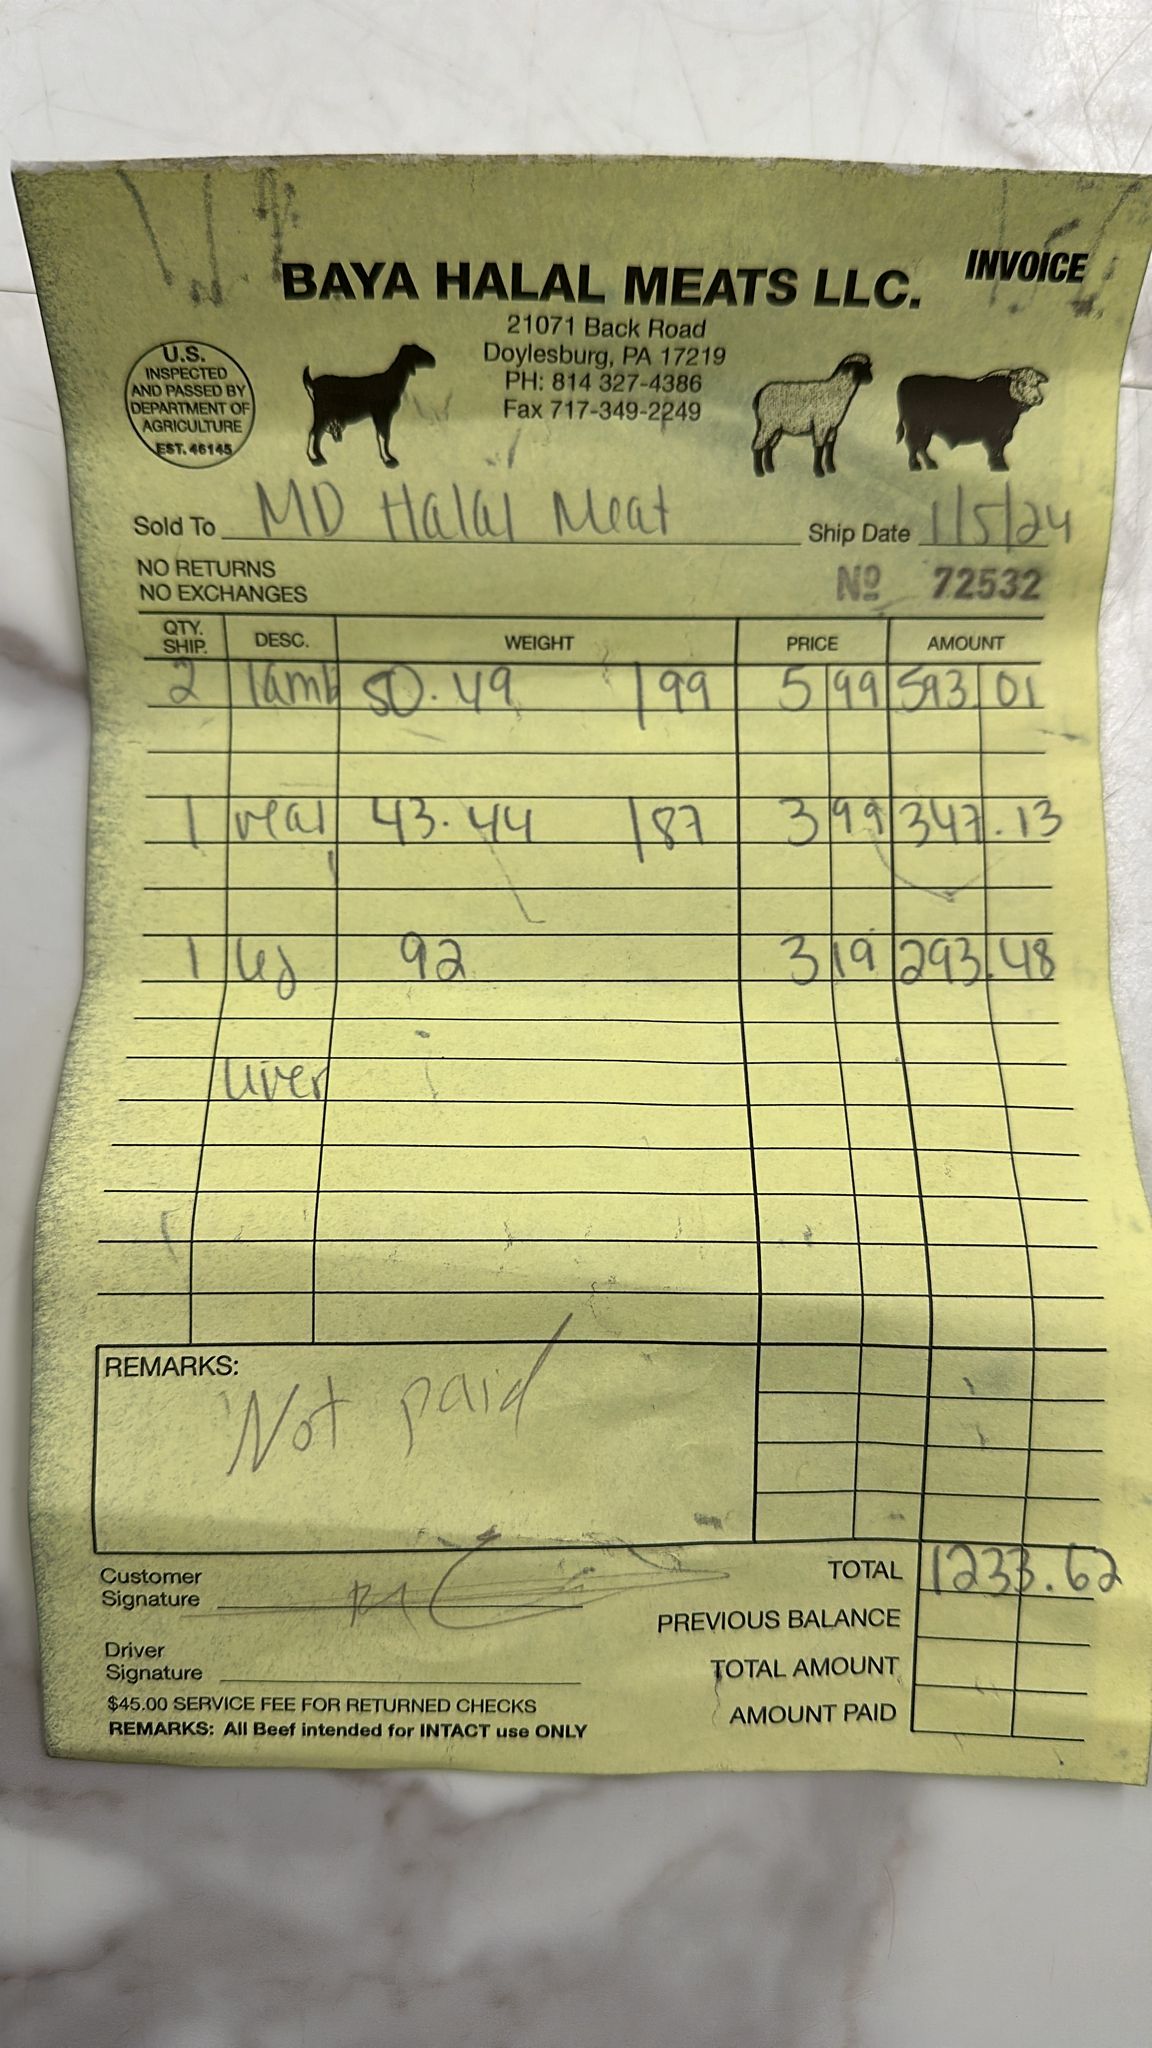 INVOICE
BAYA HALAL MEATS LLC.
21071 Back Road
Doylesburg, PA 17219
PH: 814 327-4386
Fax 717-349-2249
U.S.
INSPECTED
AND PASSED BY
DEPARTMENT OF
AGRICULTURE
EST. 46145
Sold To MD Halal Meat Ship Date 1/5/24
NO RETURNS
NO EXCHANGES
No 72532
QTY. SHIP. DESC. WEIGHT PRICE AMOUNT
2 lamb 50.49 |99 5 99 593.01
1 veal 43.44 |87 3 99 347.13
1 leg 92 3 19 293.48
liver
REMARKS:
Not paid
Customer
Signature
Driver
Signature
$45.00 SERVICE FEE FOR RETURNED CHECKS
REMARKS: All Beef intended for INTACT use ONLY
TOTAL 1233.62
PREVIOUS BALANCE
TOTAL AMOUNT
AMOUNT PAID